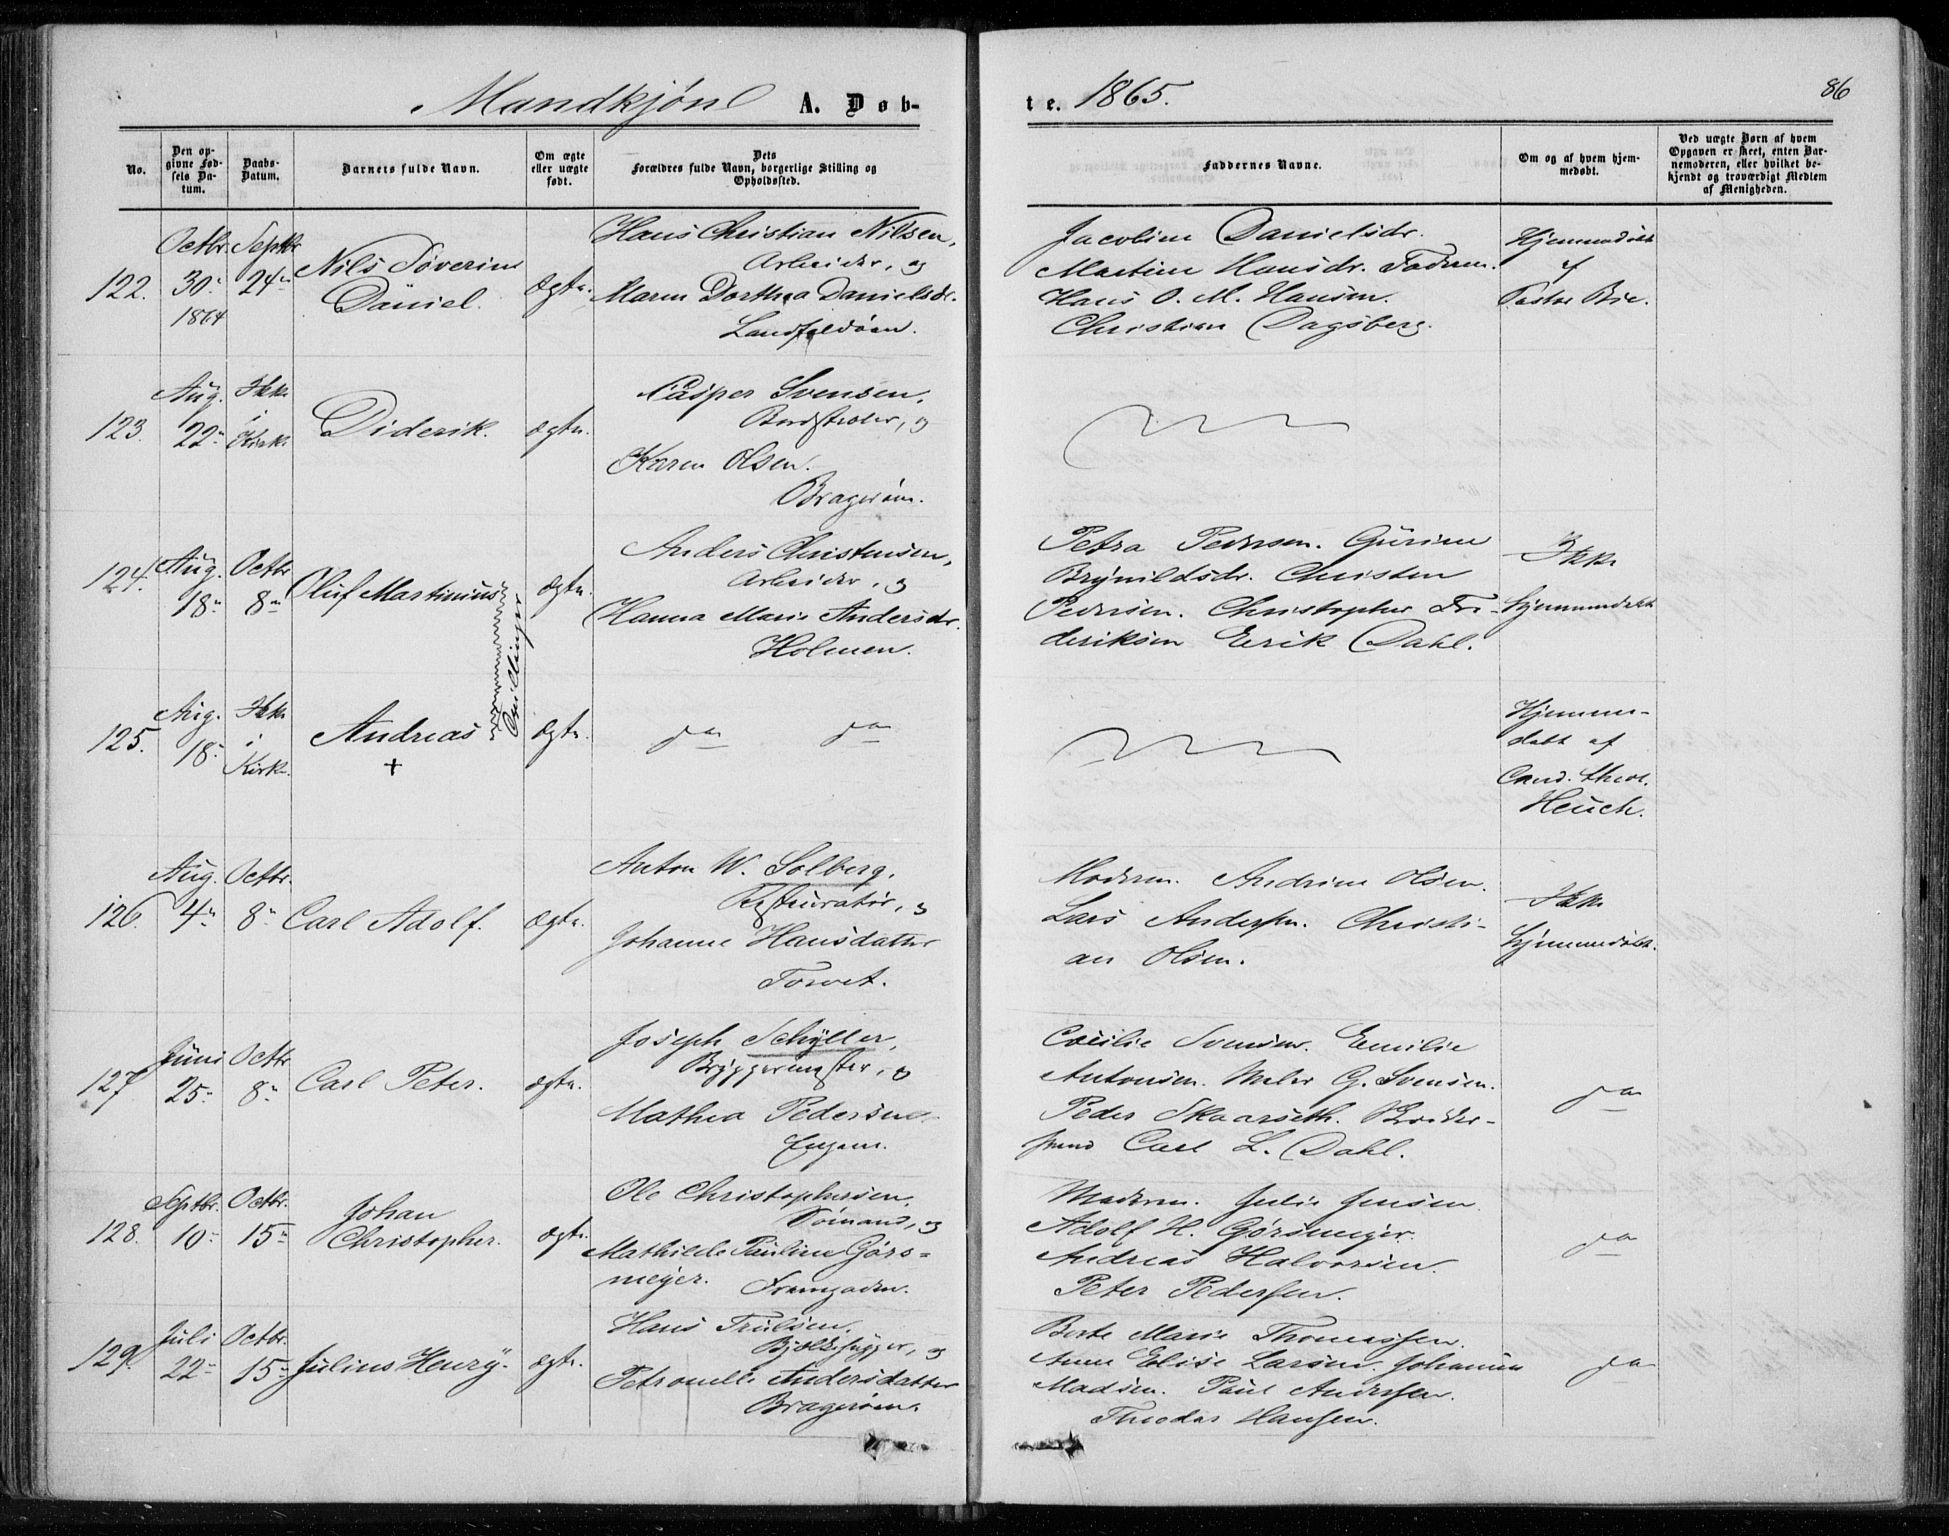 Mandkjøn A. Døb-
te. 1865.
86
No.
Den op-
givne Fød-
sels Da-
tum.
Daabs-
Datum.
Barnets fulde Navn.
Om ægte
eller uægte
født.
Dets
Forældres fulde Navn, borgerlige Stilling og
Opholdssted.
Faddernes Navne.
Om og af hvem hjem-
medøbt.
Ved uægte Børn af hvem
Opgaven er skeet, enten Bar-
nemoderen, eller hvilket be-
kjendt og troværdigt Medlem
af Menigheden.
122.
Octbr.
30
1864
Septbr
24
Nils Søverin
Daniel.
Ægte.
Hans Christian Nilsen,
Arbeider, og
Maren Dorthea Danielsdr.
Landfaldøen.
Jacoline Danielsdr.
Martine Hansdr. Faderen.
Hans O. M. Hansen.
Christian Dagsberg.
Hjemmedøbt
af
Pastor Bie.
123.
Aug.
22
Ikke
i
Kirke
Diderik.
ægte.
Casper Svensen,
Bordstabler, og
Karen Olsen.
Bragerøen.
124.
Aug.
18
Octbr
8
Oluf Martinius
Tvillinger
ægte.
Anders Christensen,
Arbeider, og
Hanna Marie Andersdr.
Holmen.
Petra Pedersen. Gurine
Brynildsdr. Christen
Pedersen. Christopher Fre-
deriksen Eerik Dahl.
Ikke
hjemmedøbt
125.
Aug.
18
Ikke
i
Kirke.
Andreas
+
Ægte.
do do
Hjemme-
døbt af
Cand. theol.
Heuch.
126.
Aug.
4
Octbr.
8
Carl Adolf.
ægte.
Anton W. Solberg,
Restauratør, og
Johanne Hansdatter
Torvet.
Moderen. Andrine Olsen.
Lars Andersen. Christi-
an Olsen.
Ikke
hjemmedøbt.
127
Juni
25
Octbr
8
Carl Peter.
ægte.
Joseph Schyller,
Bryggermester, og
Mathea Pedersen.
Engene.
Cecilie Svensen. Emilie
Antonsen. Maler G. Svensen.
Peder Skaarseth.
Carl L. Dahl.
do
128.
Septbr.
10
Octbr.
15
Johan
Christopher.
ægte.
Ole Christophersen,
Sømand, og
Mathilde Pauline Gørs-
meyer.
Framgaden.
Moderen. Julie Jensen.
Adolf H. Gørsmeyer.
Andreas Halvorsen.
Peter Pedersen.
do
129.
Juli
22
Octbr.
15
Julius Henry.
ægte.
Hans Trulsen.
Bjelkehugger, og
Petronelle Andersdatter
Bragerøen.
Berte Marie Thomassen.
Anne Elise Larsen. Johanne
Madsen. Paul Andersen.
Theodor Hansen.
do